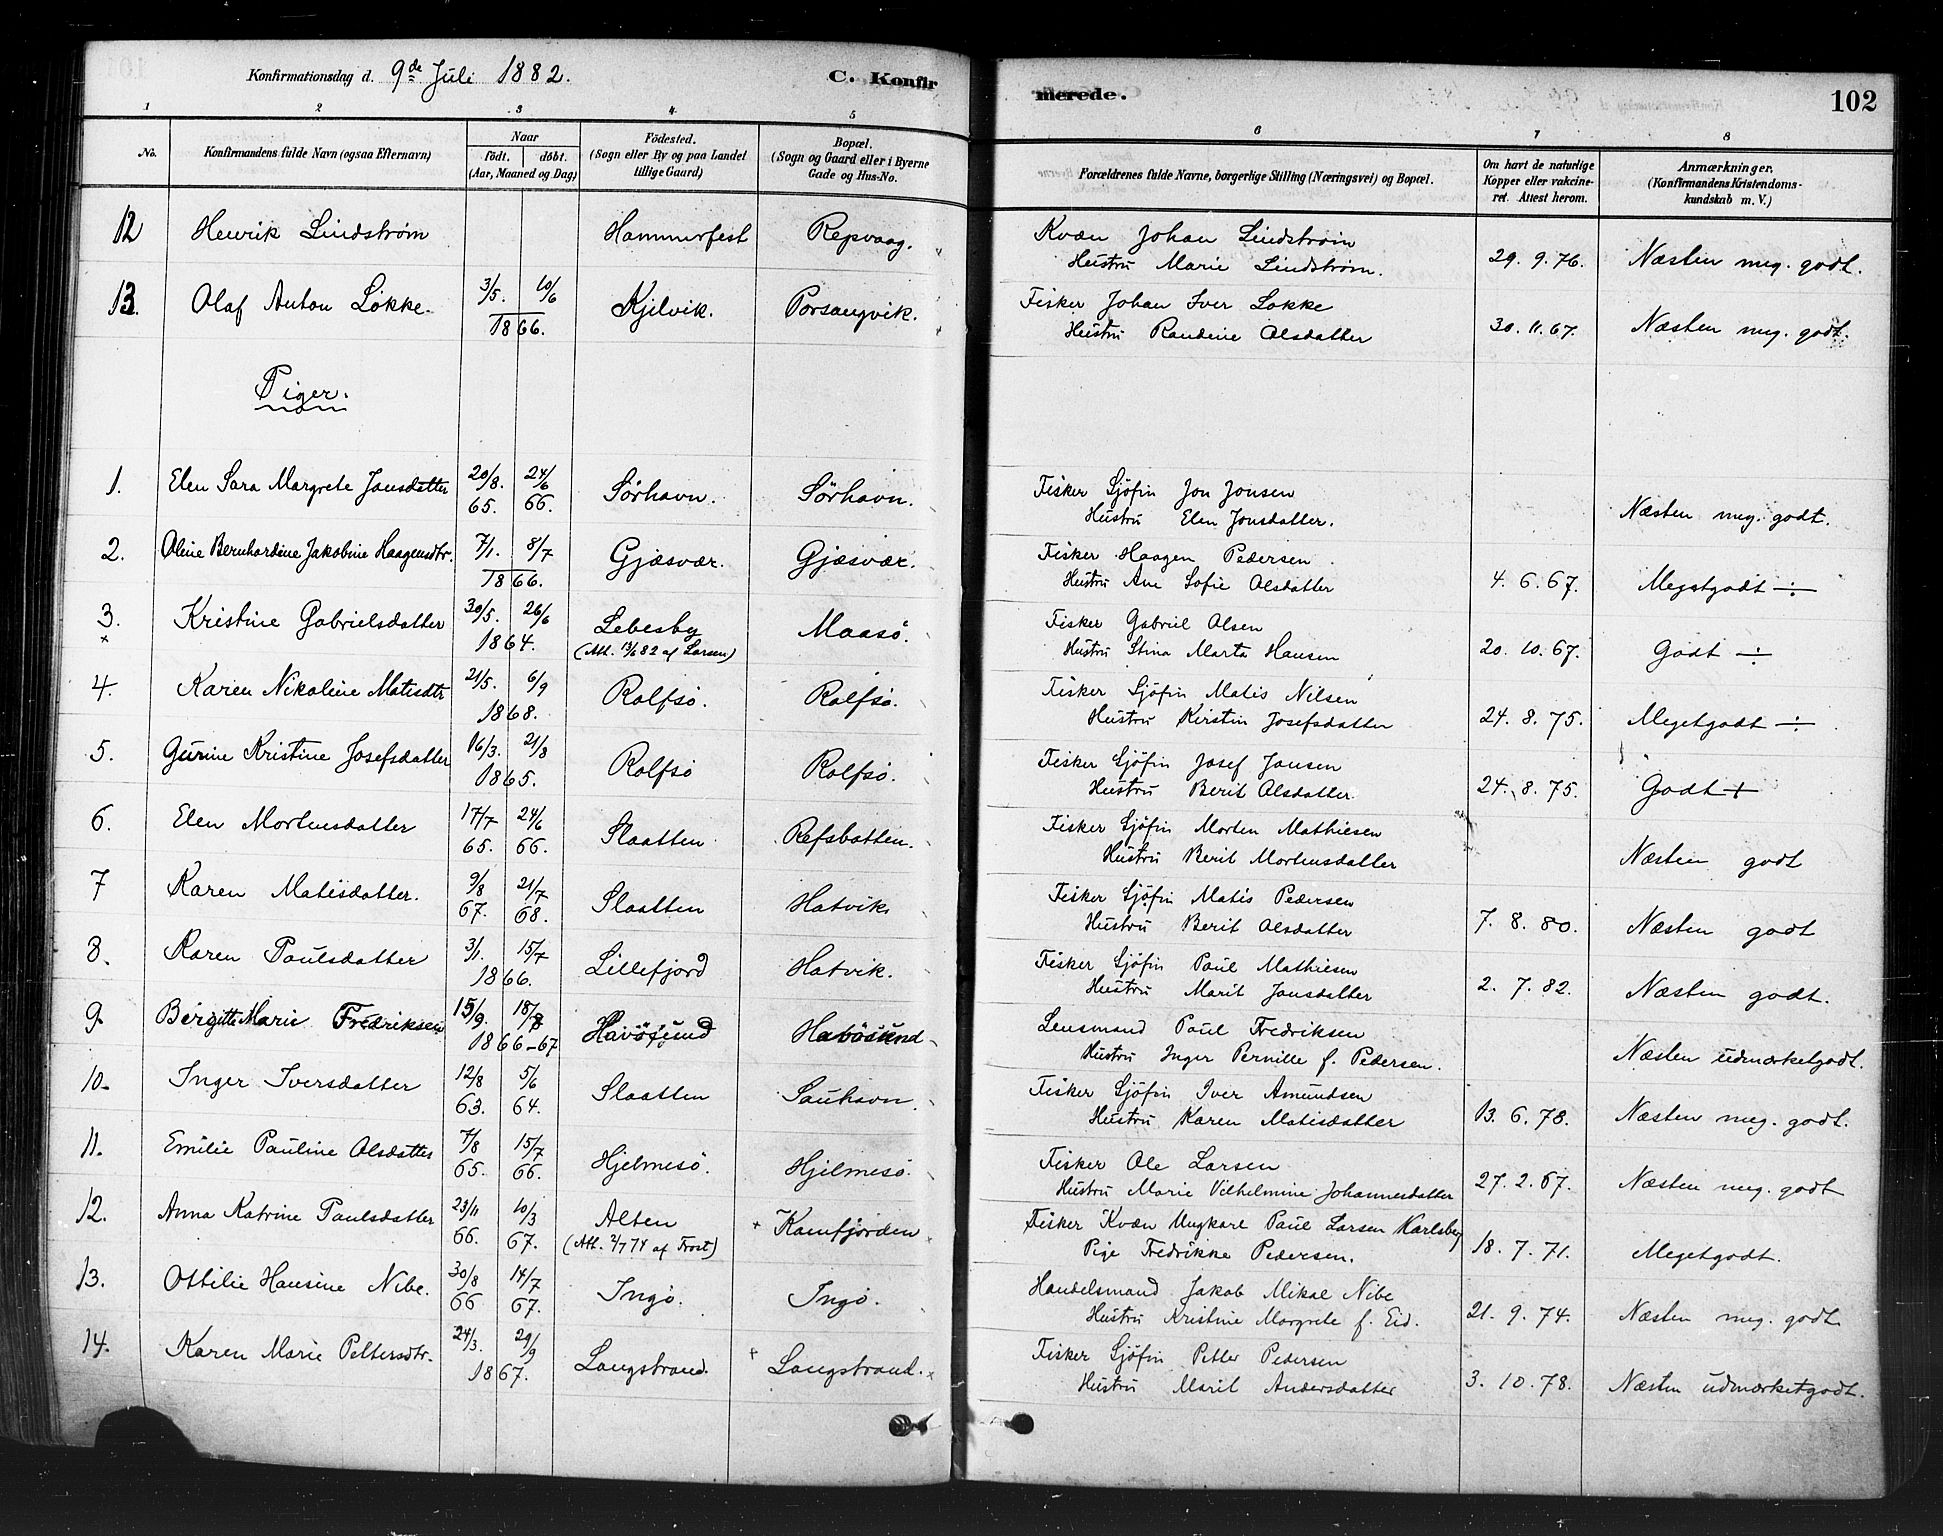 Konfirmationsdag d. 9de Juli 1882. C. Konfirmerede. 102
1 2 3 4 5 6 7 8
No. Konfirmandens fulde Navn (ogsaa Efternavn) Naar födt. döbt. (Aar, Maaned og Dag) Födested. (Sogn eller By og paa Landet tillige Gaard) Bopæl. (Sogn og Gaard eller i Byerne Gade og Hus-No. Forældrenes fulde Navne, borgerlige Stilling (Næringsvei) og Bopæl. Om havt de naturlige Kopper eller vakcineret. Attest herom. Anmærkninger. (Konfirmandens Kristendomskundskab m. V.)
12 Henrik Lindstrøm Hammerfest Repvaag. Kvæn Johan Lindstrøm
Hustru Marie Lindstrøm. 29. 9. 76. Næsten meg. godt.
13. Olaf Anton Lökke. 3/5. 10/6 1866. Kjelvik. Porsangvik. Fisker Johan Iver Lokke
Hustru Randine Olsdatter 30. 11. 67. Næsten meg. godt.
Piger.
1. Elen Sara Margrete Jonsdatter 20/8. 65. 24/6 66. Sörhavn. Sörhavn. Fisker Sjöfin Jon Jonsen
Hustru Elen Jonsdatter. Næsten meg. godt.
2. Oline Bernhardine Jakobine Haagensdtr. 7/1. 8/7 1866. Gjæsvær. Gjæsvær. Fisker Haagen Pedersen
Hustru Ane Sofie Olsdatter 4. 6. 67. Megetgodt ÷
3. × Kristine Gabrielsdatter 30/5. 26/6 1864. Lebesby (Att. 13/6 82 af Larsen) Maasö. Fisker Gabriel Olsen
Hustru Stina Marta Hansen 20. 10. 67. Godt ÷
4. Karen Nikoline Matisdtr 21/5. 6/9 1868. Rolfsö. Rolfsö. Fisker Sjöfin Matis Nilsen
Hustru Kirstin Josefsdatter 24. 8. 75. Megetgodt ÷
5. Gurine Kristine Josefsdatter 16/3. 21/8 1865. Rolfsö Rolfsö. Fisker Sjöfin Josef Jansen
Hustru Berit Olsdatter 24. 8. 75. Godt +
6. Elen Mortensdatter 17/7 65. 24/6 66. Slaatten Refsbotten. Fisker Sjöfin Morten Mathiesen
Hustru Berit Mortensdatter Næsten godt
7 Karen Matisdatter. 9/8 67. 21/7 68. Slaatten Hatvik Fisker Sjöfin Matis Pedersen
Hustru Berit Olsdatter 7. 8. 80. Næsten godt
8. Karen Paulsdatter 3/1. 15/7 1866. Lillefjord Hatvik. Fisker Sjöfin Paul Mathiesen
Hustru Marit Jonsdatter 2. 7. 82. Næsten godt.
9. Birgitte Marie Fredriksen 15/9. 18/8 1866-67 Havösund Havösund Lensmand Paul Fredriksen
Hustru Inger Pernille f. Pedersen. Næsten udmærketgodt.
10. Inger Iversdatter 12/8 63. 5/6 64. Slaatten Sauhavn. Fisker Sjöfin Iver Amundsen
Hustru Karen Matisdatter 13. 6. 78. Næsten meg. godt.
11. Emilie Pauline Olsdatter 7/8 65. 15/7 66. Hjelmesö. Hjelmesö. Fisker Ole Larsen
Hustru Marie Vilhelmine Johannesdatter 27. 2. 67. Næsten meg. godt
12. Anna Katrine Paulsdatter 23/11 66. 10/3 67. Alten (Att. 2/7 74 af Frost) + Kamfjorden Fisker Kvæn Ungkarl Paul Larsen Karlsberg
Pige Fredrikke Pedersen. 18. 7. 71. Megetgodt.
13. Ottilie Hansine Nibe. 30/8 66 14/7 67. Ingö. Ingö. Handelsmand Jakob Mikal Nibe
Hustru Kristine Margrete f. Eid. 21. 9. 74. Næsten meg. godt.
14. Karen Marie Pettersdtr. 24/3. 29/9 1867. Langstrand. + Langstrand. × Fisker Sjöfin Petter Pedersen
Hustru Marit Andersdatter 3. 10. 78. Næsten udmærketgodt.